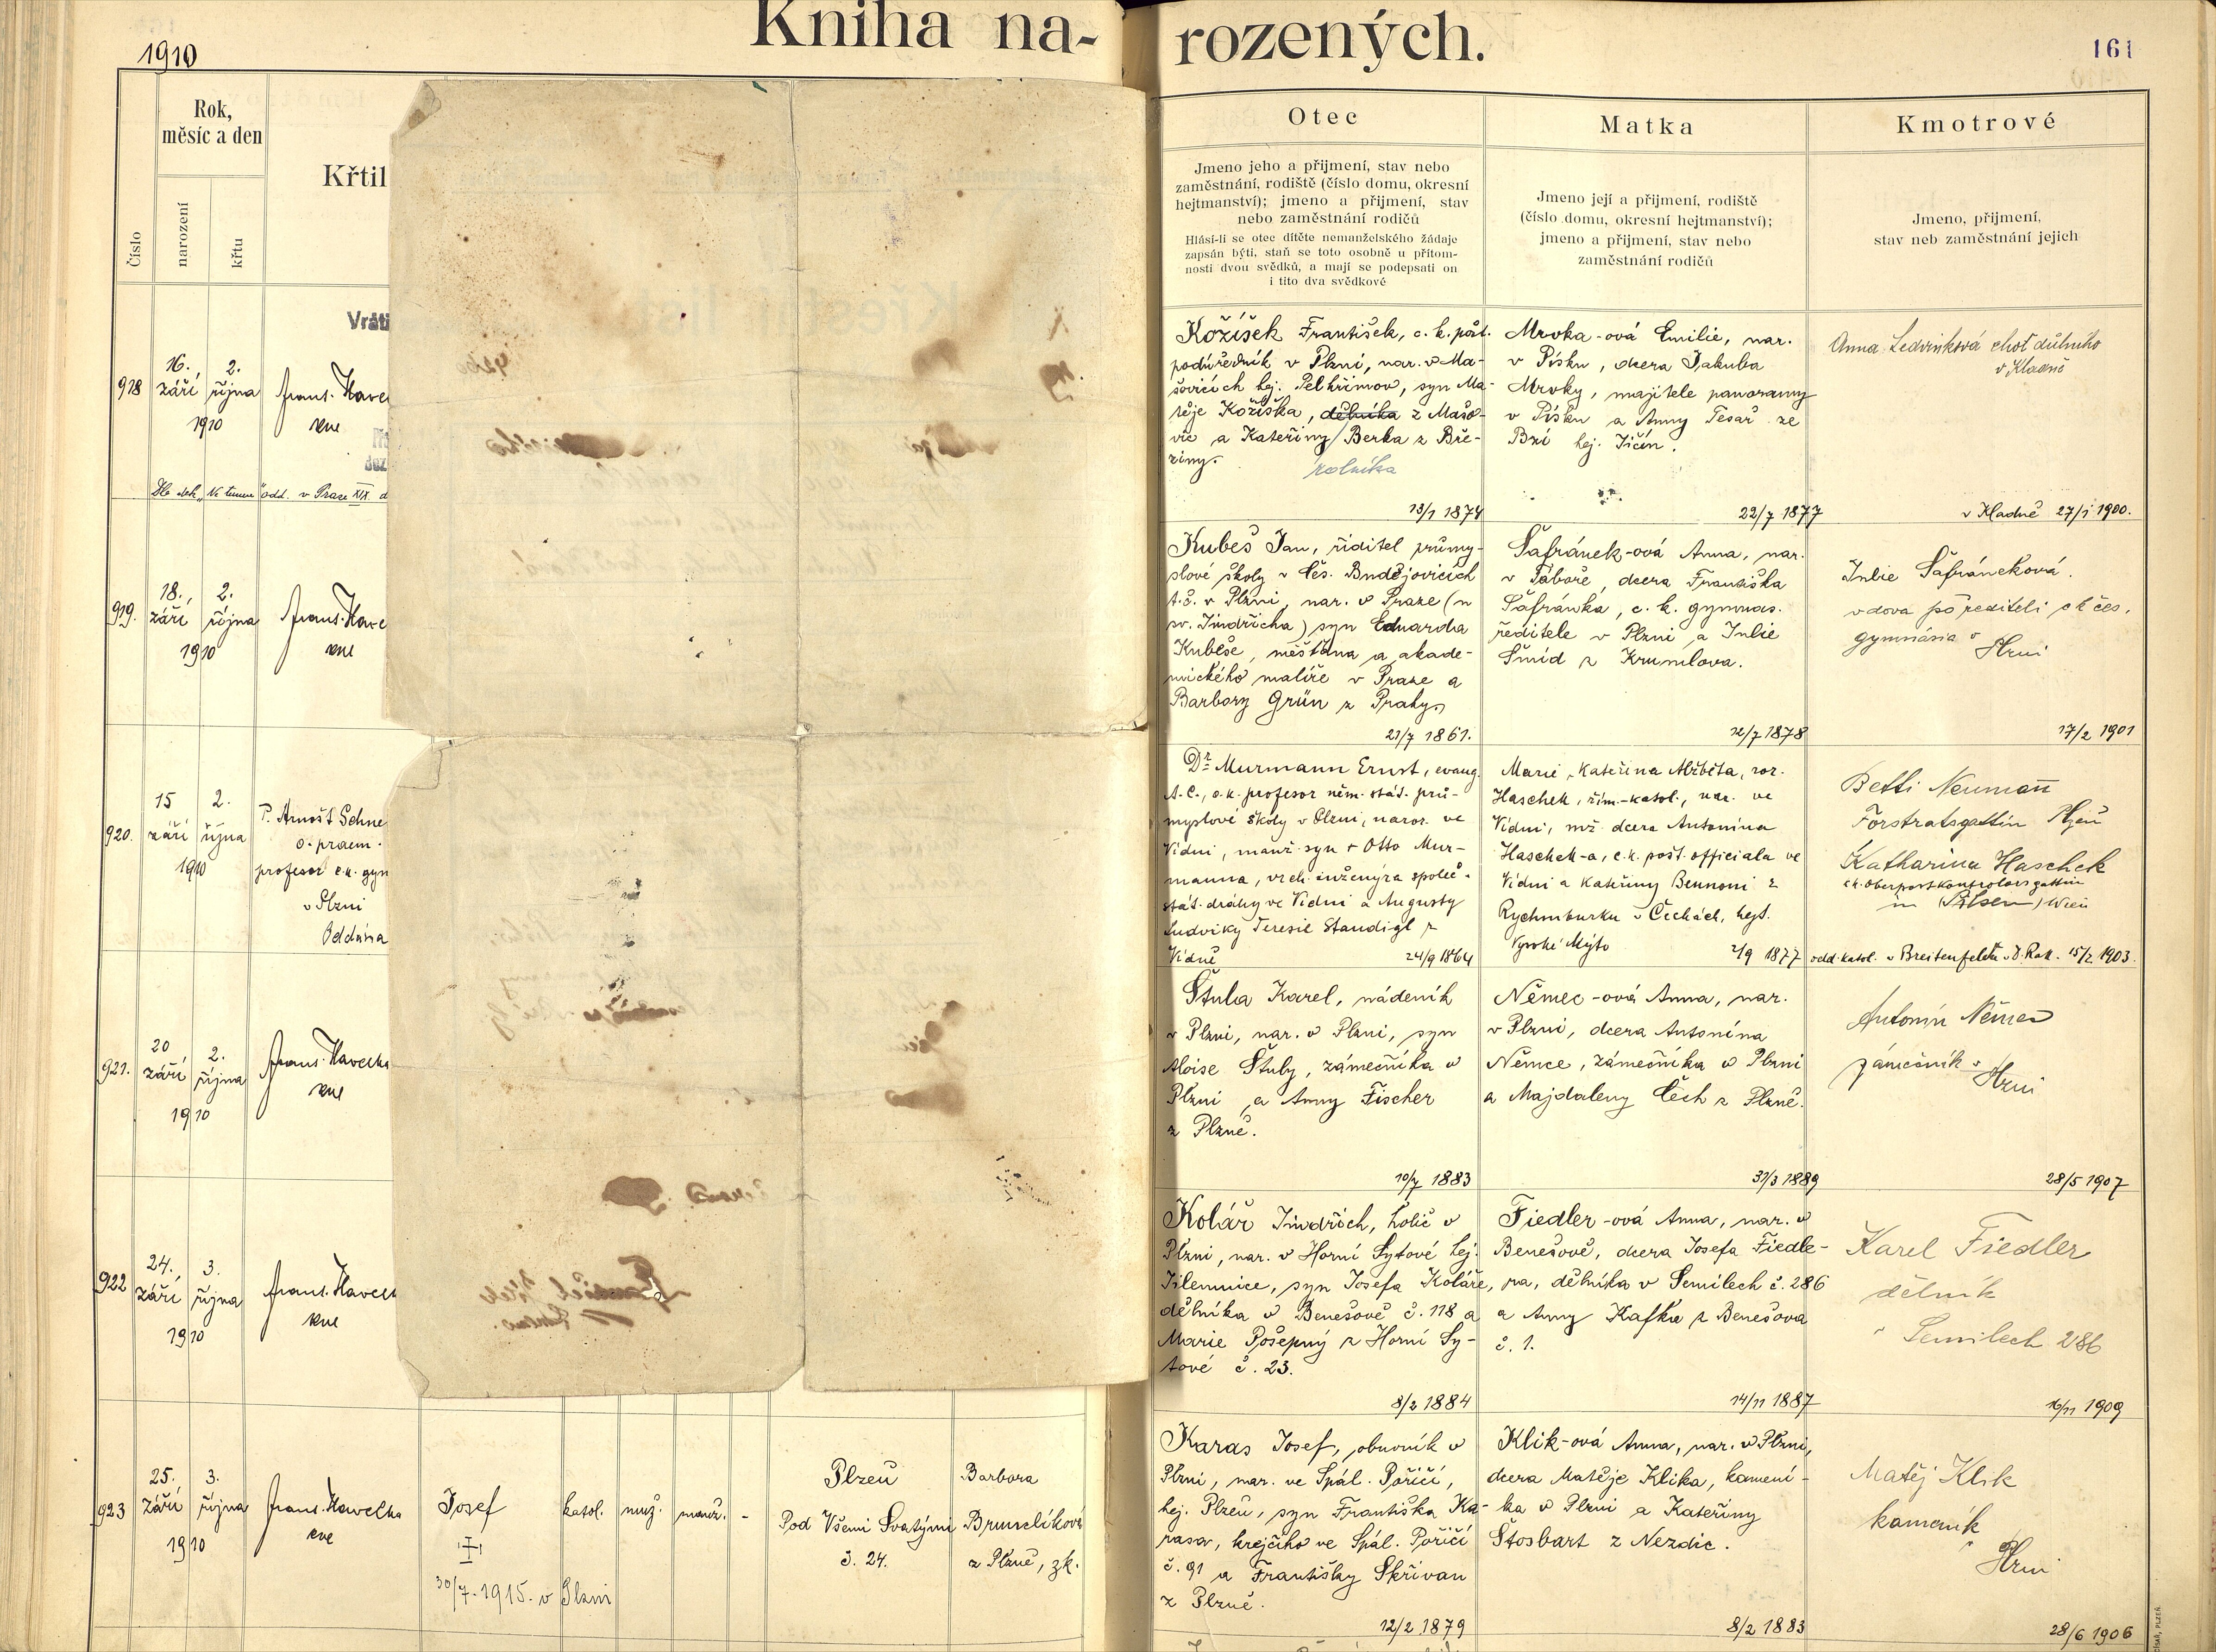 1910
Kniha na-
rozených.
161
Rok,
měsíc a den
Číslo
narození
křtu
Křtil
Otec
Jmeno jeho a příjmení, stav nebo
zaměstnání, rodiště (číslo domu, okresní
hejtmanství); jmeno a příjmení, stav
nebo zaměstnání rodičů
Hlásí-li se otec dítěte nemanželského žádaje
zapsán býti, staň se toto osobně u přítom-
nosti dvou svědků, a mají se podepsati on
i tito dva svědkové
Matka
Jmeno její a příjmení, rodiště
(číslo domu, okresní hejtmanství);
jmeno a příjmení, stav nebo
zaměstnání rodičů
Kmotrové
Jmeno, příjmení,
stav neb zaměstnání jejich
Vráti
918
16.
září
2.
října
1910
Frant. Have
Kožíšek František, c. k. pošt.
podúředník v Plzni, nar. v Ma-
šovicích hej. Pelhřimov, syn Ma-
těje Kožíška, dělníka z Mašo-
vic a Kateřiny Berka z Bře-
ziny.
rolníka
13/1 1874
Mrvka-ová Emilie, nar.
v Písku, dcera Jakuba
Mrvky, majitele panoramy
v Písku a Anny Tesař ze
Bzí hej. Jičín.
22/7 1877
Anna Ledvinková choť důlního
v Kladně
v Kladně 27/1 1900.
odd. v Praze XIX.
919.
18.,
září
2.
října
1910
Frant. Have
Kubeš Jan, řiditel průmy-
slové školy v Čes. Budějovicích
t. č. v Plzni, nar. v Praze (u
sv. Jindřicha) syn Eduarda
Kubeše, měšťana a akade-
mického malíře v Praze a
Barbory Grün z Prahy
21/7 1861.
Šafránek-ová Anna, nar.
v Táboře, dcera Františka
Šafránka, c. k. gymnas.
ředitele v Plzni a Julie
Šmíd z Krumlova.
12/7 1878
Julie Šafráneková.
vdova po řediteli c k čes.
gymnásia v
Plzni
17/2 1901
920.
15
září
2.
října
1910
P. Arnošt Schne
o. praem.
profesor c. k. gym
v Plzni
Oddána
Dr Murmann Ernst, evang.
A. C., c. k. profesor něm. stát. prů-
myslové školy v Plzni, naroz. ve
Vídni, manž. syn + Otto Mur-
manna, vrch. inženýra společ.
stát. dráhy ve Vídni a Augusty
Ludviky Teresie Staudigl z
Vídně
24/9 1864
Marie, Kateřina Alžběta, roz.
Haschek, řím.-katol., nar. ve
Vídni, mž. dcera Antonína
Haschek-a, c. k. pošt. officiala ve
Vídni a Kateřiny Bennoni z
Rychmburku v Čechách, hejt.
Vysoké Mýto
2/9 1877
Betti Neumann
Forstratsgattin Plzeň
Katharina Haschek
k. k. Oberpostkontrolorsgattin
in (Pilsen) Wien
odd. katol. v Breitenfeldu v D. Rak. 15/2. 1903.
921.
20
září
2.
října
1910
Frant. Havelka
Štula Karel, nádeník
v Plzni, nar. v Plzni, syn
Aloise Štuly, zámečníka v
Plzni a Anny Fischer
z Plzně.
10/7 1883
Němec-ová Anna, nar.
v Plzni, dcera Antonína
Němce, zámečníka v Plzni
a Majdaleny Čech z Plzně.
31/3 1889
Antonín Němec
zámečník v
Plzni
28/5 1907
922
24.
září
3.
října
1910
Frant. Havelk
Kolář Jindřich, holič v
Plzni, nar. v Horní Sytové hej.
Jilemnice, syn Josefa Koláře,
dělníka v Benešově č. 118 a
Marie Pošepný z Horní Sy-
tové č. 23.
8/2 1884
Fiedler-ová Anna, nar. v
Benešově, dcera Josefa Fiedle-
ra, dělníka v Semilech č. 286
a Anny Kafka z Benešova
č. 1.
14/11 1887
Karel Fiedler
dělník
v Semilech 286
16/11 1909
923
25.
září
3.
října
1910
Frant. Havelka
Josef
30/7. 1915. v Plzni
katol.
muž.
manž.
-
Plzeň
Pod Všemi Svatými
č. 24.
Barbora
Brunclíková
z Plzně, zk.
Karas Josef, obuvník v
Plzni, nar. ve Spál. Poříčí,
hej. Plzeň, syn Františka Ka-
rasa, krejčího ve Spál. Poříčí
č. 91 a Františky Skřivan
z Plzně.
12/2 1879
Klik-ová Anna, nar. v Plzni,
dcera Matěje Klika, kamení-
ka v Plzni a Kateřiny
Štosbart z Nezdic.
8/2 1883
Matěj Klik
kameník
v Plzni
28/6 1906